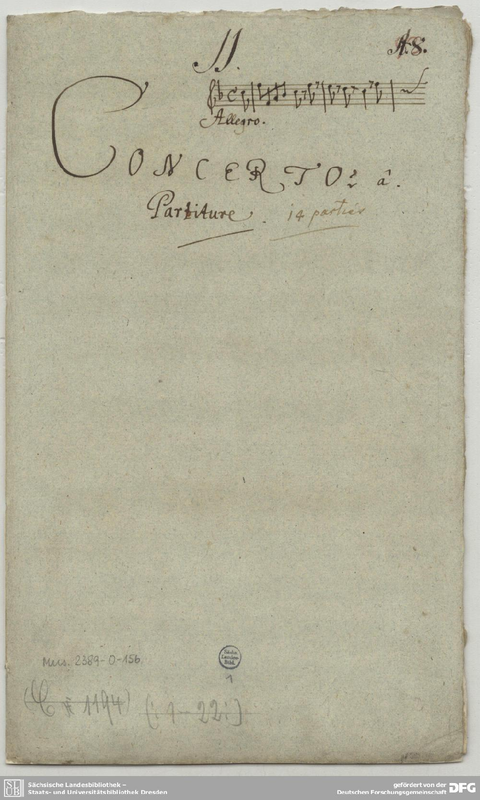 11.
Allegro.
CONCERTO. â.
Partiture. 14 parties
Mus. 2389-O-156.
1
1194 (: 1-22:)
SLUB
Sächsische Landesbibliothek –
Staats- und Universitätsbibliothek Dresden
gefördert von der
Deutschen Forschungsgemeinschaft
DFG